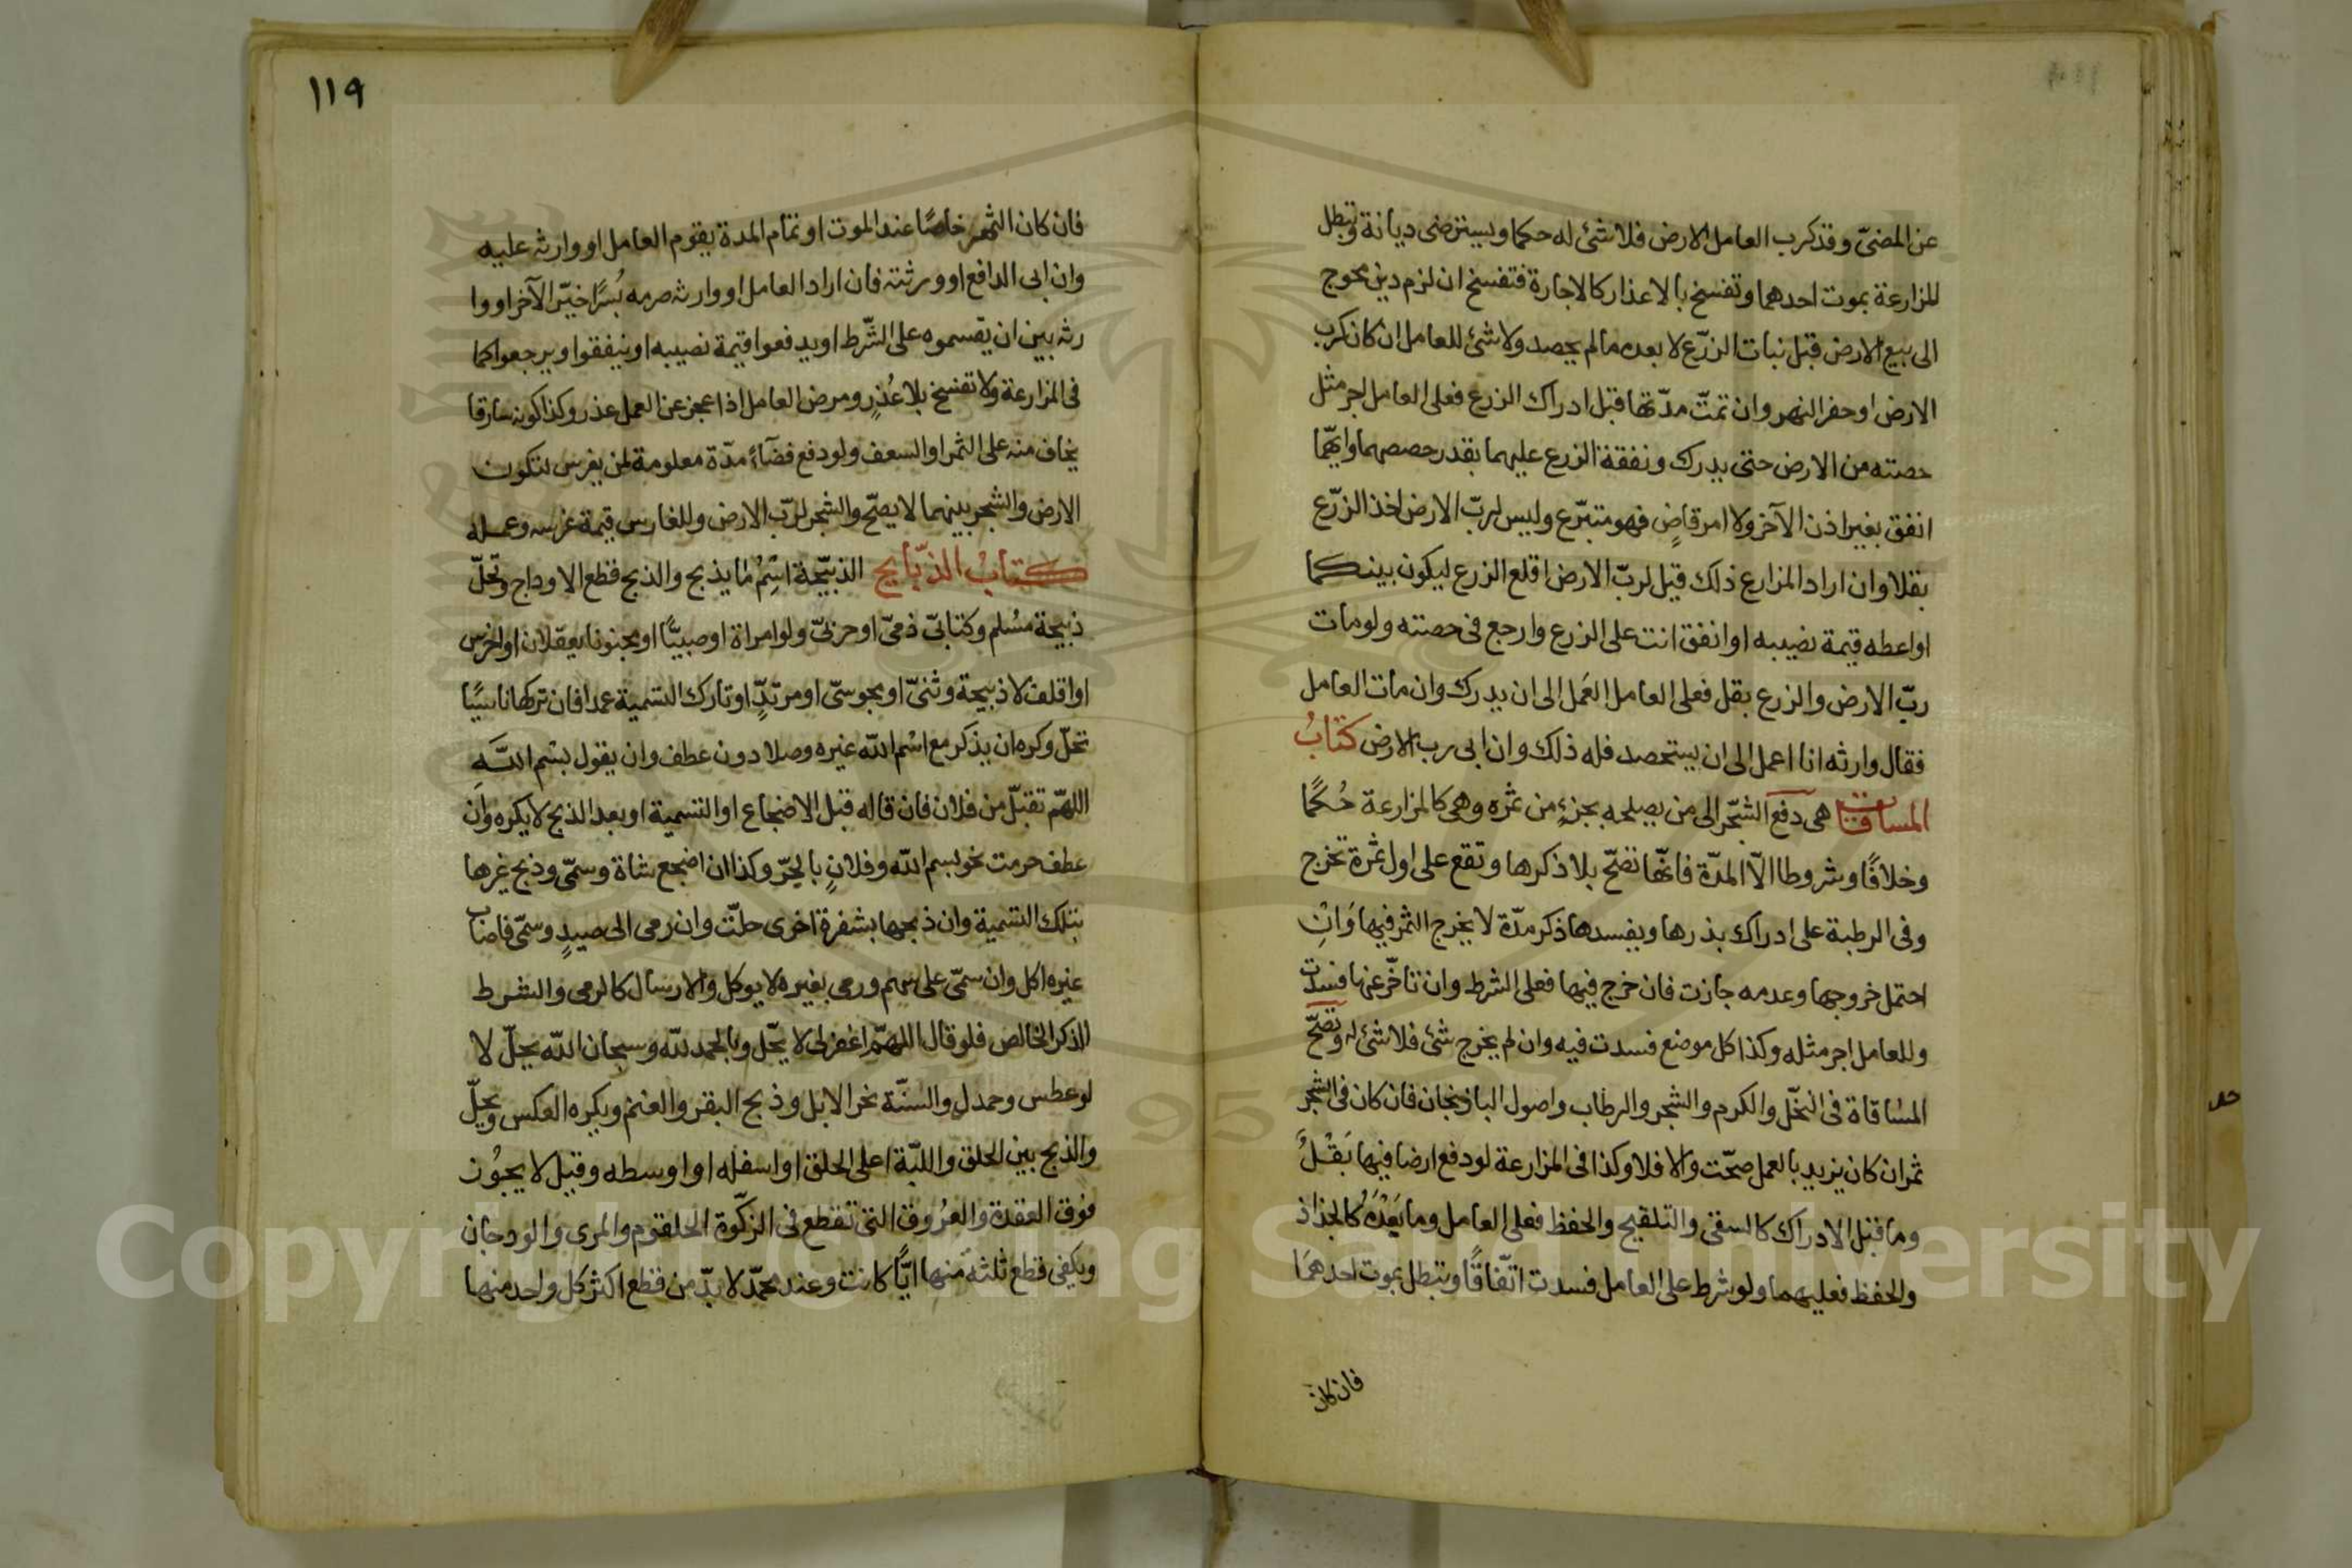 عن المضىّ وقد كرب العامل الارض فلا شئ له حكما ويسترضى ديانة وتبطل
المزارعة بموت احدهما وتفسخ بالاعذار كالاجارة فتفسخ ان لزم دين محوج
الى بيع الارض قبل نبات الزرع لا بعده مالم يحصد ولا شئ للعامل ان كان كرب
الارض او حفر النهر وان تمتّ مدّتها قبل ادراك الزرع فعلى العامل اجر مثل
حصته من الارض حتى يدرك ونفقة الزرع عليهما بقدر حصصهما وايهّما
انفق بغير اذن الآخر ولا امر قاضٍ فهو متبرّع وليس لربّ الارض اخذ الزرّع
بقلا وان اراد المزارع ذلك قيل لربّ الارض اقلع الزرع ليكون بينكما
او اعطه قيمة نصيبه او انفق انت على الزرع وارجع فى حصته ولو مات
ربّ الارض والزرع بقل فعلى العامل العَمل الى ان يدرك وان مات العامل
فقال وارثه انا اعمل الى ان يستحصد فله ذلك وان ابى رب الارض كتابُ
المساقات هى دفع الشّجر الى من يصلحه بجزءٍ من ثمره وهى كالمزارعة حُكمًا
وخلافًا وشروطا الاّ المدّة فانّها تصّح بلا ذكرها وتقع على اول ثمرة تخرج
وفى الرطبة على ادراك بذرها ويفسدها ذكر مدّة لا يخرج الثمر فيها وَانِ
احتمل خروجها وعدمه جازت فان خرج فيها فعلى الشرط وان تاخّر عنها فسدت
وللعامل اجر مثله وكذا كل موضع فسدت فيه وان لم يخرج شئ فلا شئ له وتصّح
المسْاقاة فى النخّل والكرم والشجر والرطاب واصول الباذنجان فان كان فى الشجر
ثمر ان كان يزيد بالعمل صحّت والا فلا وكذا فى المزارعة لو دفع ارضا فيها بَقْلُ
وما قبل الادراك كالسقى والتلقيح والحفظ فعلى العامل وما بَعْدَهُ كالجذاذ
والحفظ فعليهما ولو شرط على العامل فسدت اتّفاقًا وتبطل بموت احدهمَا
فان كان
١١٩
فان كان الثمر خاصًا عند الموت او تمام المدة يقوم العامل او وارثه عليه
وان ابى الدافع او ورثته فان اراد العامل او وارثه صرمه بُسرًا خيّر الآخر او وا
رثه بين ان يقسموه على الشّرط او يدفعوا قيمة نصيبه او ينفقوا ويرجعوا كما
فى المزارعة ولا تفسخ بلا عُذرٍ ومرض العامل اذا عجز عن العمل عذر وكذا كونه سارقا
يخاف منه على الثمر او السعف ولو دفع فضآءً مدّة معلومة لمن يغرس لتكون
الارض والشجر بينهما لا يصحّ والشجر لربّ الارض وللغارس قيمة غرسه وعمله
كتابُ الذّبايح الذبيّحة اسْمُ ما يذبح والذبح قطع الاوداج وتحلّ
ذبيحة مسْلم وكتابىّ ذمىّ او حربىّ ولو امراة او صبيّا او مجنونا يعقلان او اخرس
او اقلف لا ذبيحة وثنىّ او مجوسىّ او مرتدٍّ او تارك التسمية عمدا فان تركها ناسيًا
تحلّ وكره ان يذكر مع اسْم اللّه غيره وصلا دون عطف وان يقول بسْم اللّهِ
اللهّم تقبّل من فلان فان قاله قبل الاضجاع او التسمية او بعد الذبح لا يكره وان
عطف حرمت نحو بسم اللّه وفلانٍ بالجّر وكذا ان اضجع شاة وسمّى وذبح غيرها
بتلك التسمية وان ذبحها بشفرة اخرى حلّت وان رمى الى صيدٍ وسمّى فاصاب
غيره اكل وان سمّى على سهم ورمى بغيره لا يوكل والارسال كالرمى والشرط
الذكر الخالص فلو قال اللهّم اغفر لى لا يحّل وبالحمد للّه وسبحان اللّه يحلّ لا
لو عطس وحمد له والسنّة نحر الابل وذبح البقر والغنم ويكره العكس ويحلّ
والذبح بين الحلق واللبّة اعلى الحلق او اسفله او اوسطه وقيل لا يجوُز
فوق العقدة والعرُوق التى تقطع فى الزكّوة الحلقوم والمرى والودجان
ويكفى قطع ثلثة منها ايًّا كانت وعند محمّد لا بدّ من قطع اكثر كل واحد منها
Copyright © King Saud University